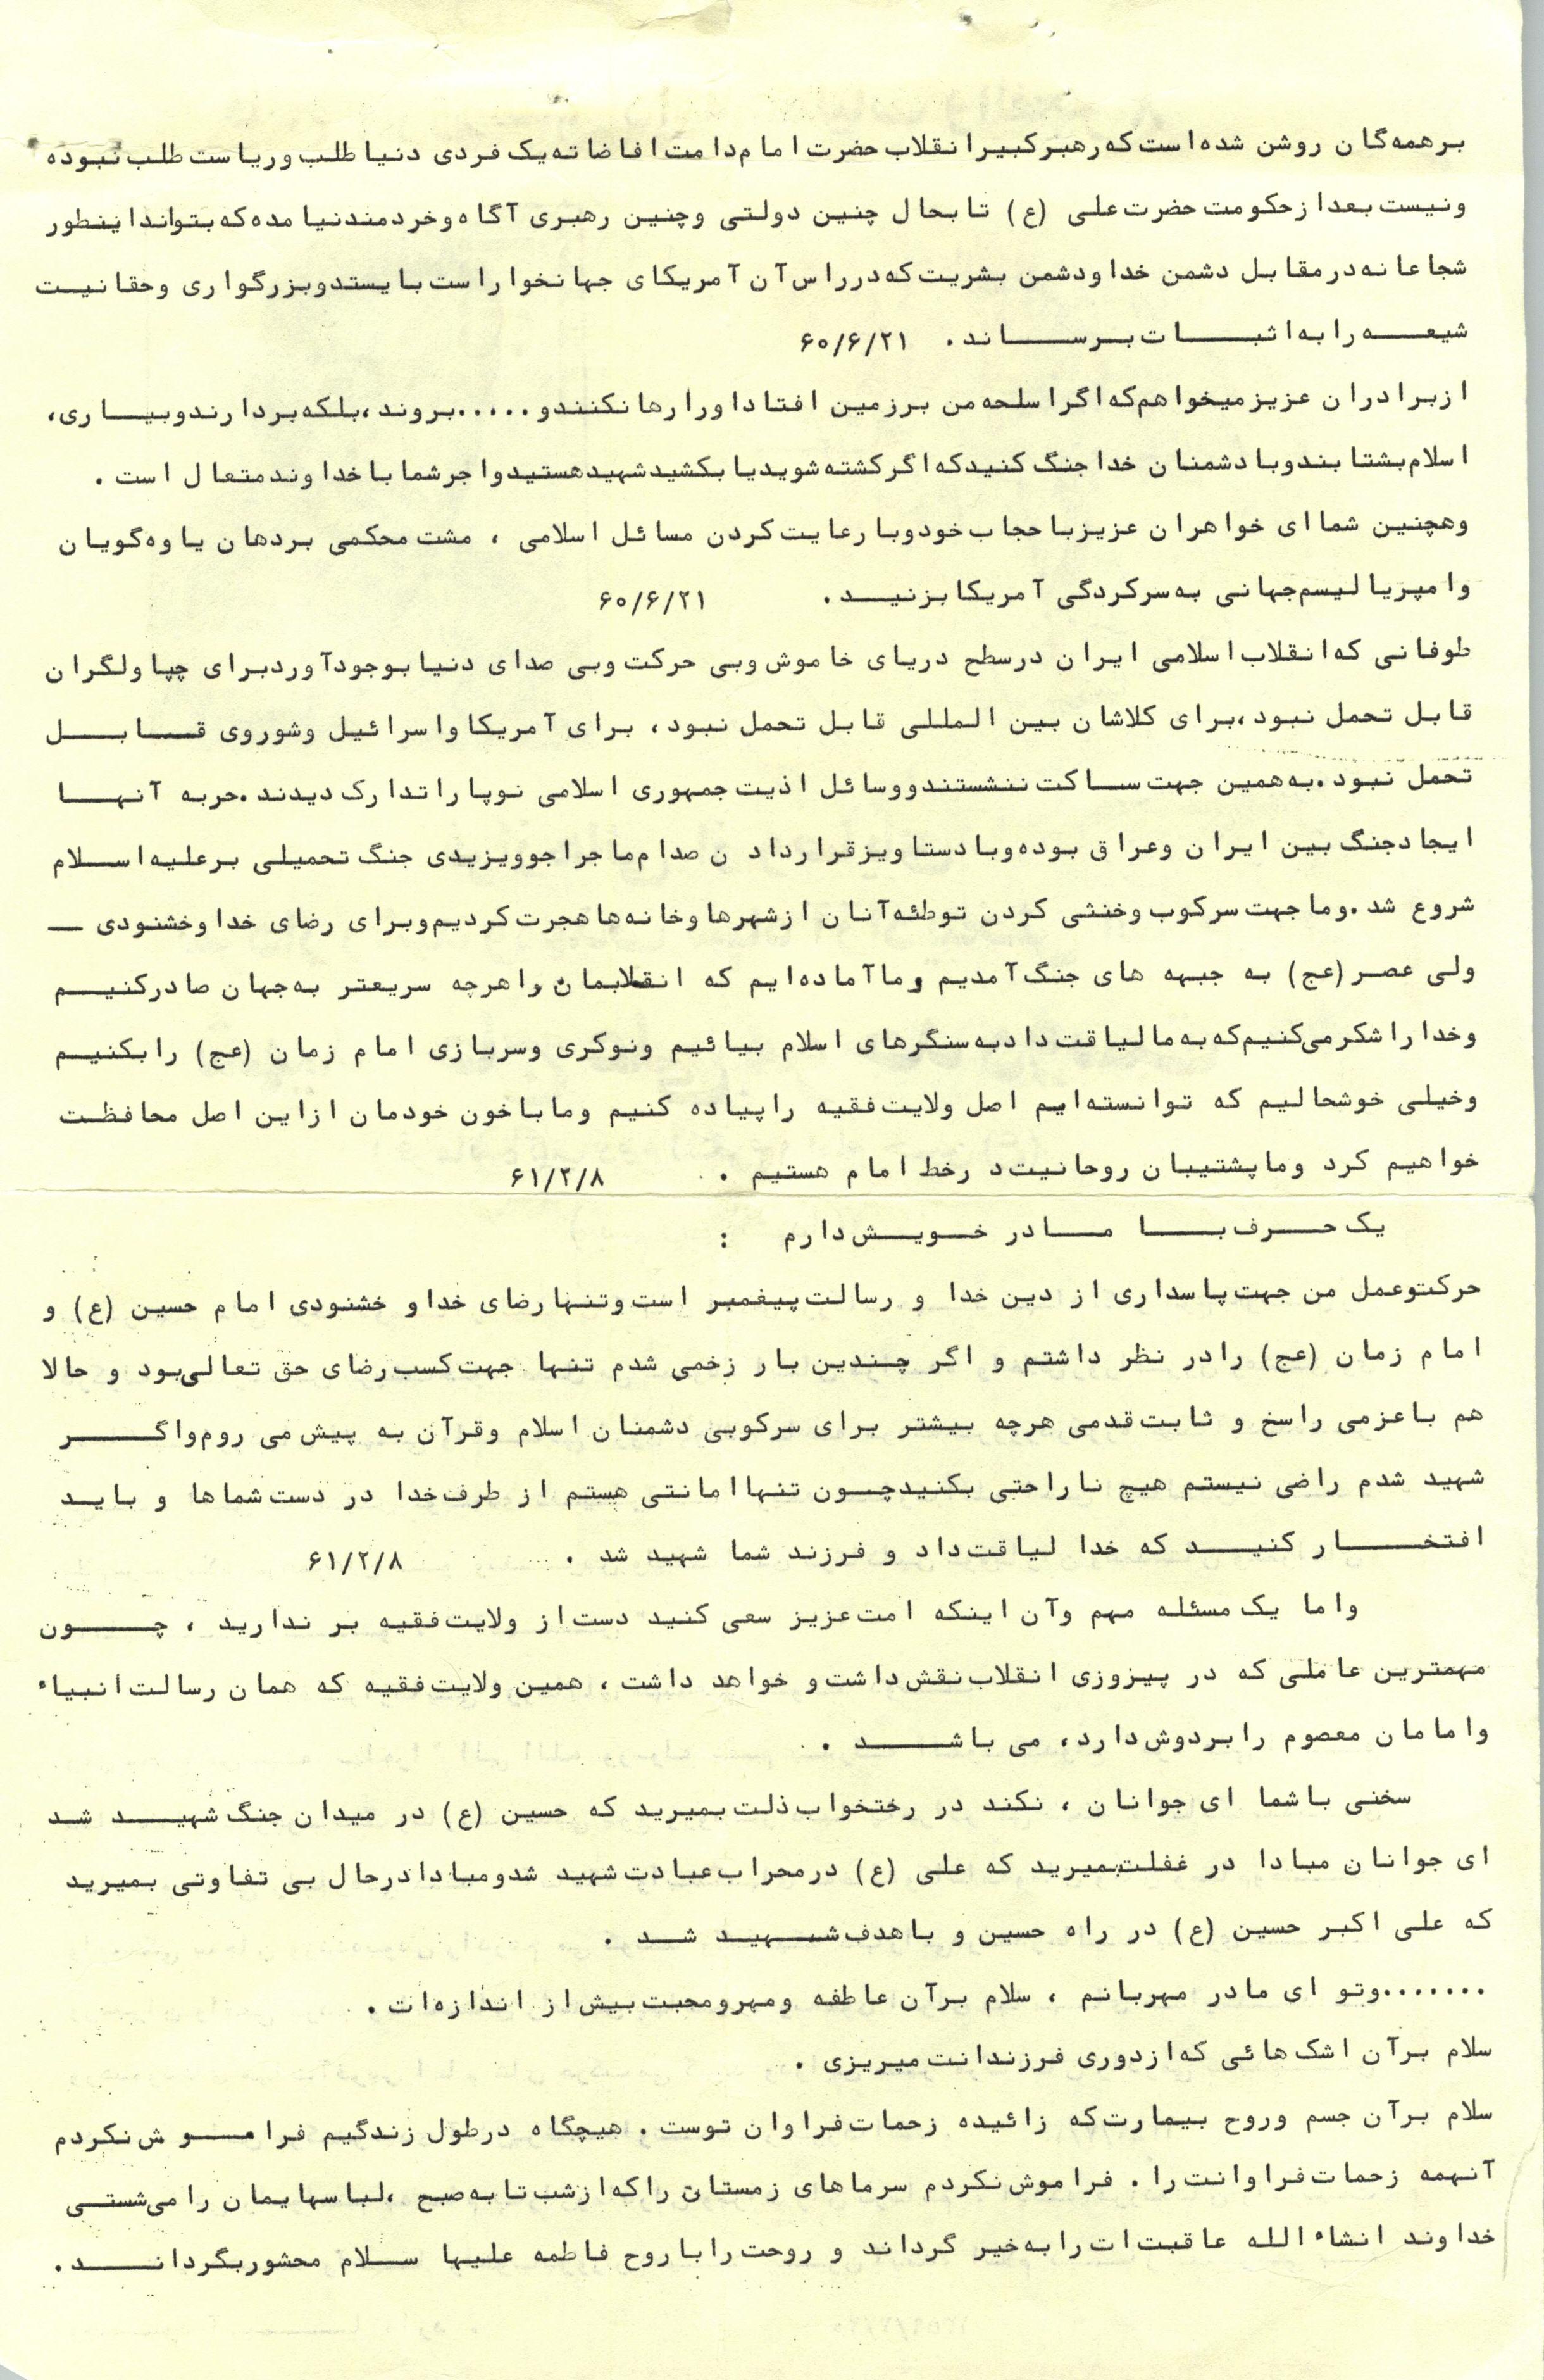 برهمه‌گان روشن شده‌است که رهبرکبیرانقلاب حضرت امام دامت افاضاته یک فردی دنیاطلب وریاست طلب نبوده
ونیست بعدازحکومت حضرت علی (ع) تابحال چنین دولتی وچنین رهبری آگاه وخردمندنیامده که بتوانداینطور
شجاعانه درمقابل دشمن خداودشمن بشریت که درراس آن آمریکای جهانخواراست بایستدوبزرگواری وحقانیت
شیعه رابه اثبات برساند. ۶۰/۶/۲۱
ازبرادران عزیزمیخواهم که اگراسلحه من برزمین افتاداورارهانکنندو.....بروند،بلکه بردارندوبیاری،
اسلام بشتابندوبادشمنان خداجنگ کنیدکه اگرکشته شویدیابکشیدشهیدهستیدواجرشماباخداوندمتعال است .
وهچنین شماای خواهران عزیزباحجاب خودوبارعایت کردن مسائل اسلامی ، مشت محکمی بردهان یاوه‌گویان
وامپریالیسم جهانی به سرکردگی آمریکابزنید. ۶۰/۶/۲۱
طوفانی که انقلاب اسلامی ایران درسطح دریای خاموش وبی حرکت وبی صدای دنیابوجودآوردبرای چپاولگران
قابل تحمل نبود،برای کلاشان بین المللی قابل تحمل نبود، برای آمریکاواسرائیل وشوروی قابل
تحمل نبود.به همین جهت ساکت ننشستندووسائل اذیت جمهوری اسلامی نوپاراتدارک دیدند.حربه آنها
ایجادجنگ بین ایران وعراق بوده‌وبادستاویزقرارداد ن صدام ماجراجوویزیدی جنگ تحمیلی برعلیه اسلام
شروع شد.وماجهت سرکوب وخنثی کردن توطئه‌آنان ازشهرهاوخانه‌هاهجرت کردیم وبرای رضای خداوخشنودی —
ولی عصر(عج) به جبهه های جنگ آمدیم وماآماده‌ایم که انقلابمان راهرچه سریعتر به جهان صادرکنیم
وخداراشکرمی‌کنیم که به مالیاقت دادبه سنگرهای اسلام بیائیم ونوکری وسربازی امام زمان (عج) رابکنیم
وخیلی خوشحالیم که توانسته‌ایم اصل ولایت فقیه راپیاده کنیم وماباخون خودمان ازاین اصل محافظت
خواهیم کرد وماپشتیبان روحانیت د رخط امام هستیم . ۶۱/۲/۸
یک حرف با مادر خویش دارم :
حرکت‌وعمل من جهت پاسداری از دین خدا و رسالت پیغمبر است وتنهارضای خداو خشنودی امام حسین (ع) و
امام زمان (عج) رادر نظر داشتم و اگر چندین بار زخمی شدم تنها جهت کسب رضای حق تعالی‌بود و حالا
هم باعزمی راسخ و ثابت قدمی هرچه بیشتر برای سرکوبی دشمنان اسلام وقرآن به پیش می روم‌واگر
شهید شدم راضی نیستم هیچ ناراحتی بکنیدچون تنهاامانتی هستم از طرف خدا در دست شماها و باید
افتخار کنید که خدا لیاقت داد و فرزند شما شهید شد . ۶۱/۲/۸
واما یک مسئله مهم وآن اینکه امت عزیز سعی کنید دست از ولایت فقیه بر ندارید ، چون
مهمترین عاملی که در پیزوزی انقلاب نقش داشت و خواهد داشت ، همین ولایت فقیه که همان رسالت انبیاء
وامامان معصوم رابردوش دارد، می باشد .
سخنی باشما ای جوانان ، نکند در رختخواب ذلت بمیرید که حسین (ع) در میدان جنگ شهید شد
ای جوانان مبادا در غفلت‌بمیرید که علی (ع) درمحراب عبادت شهید شدومبادادرحال بی تفاوتی بمیرید
که علی اکبر حسین (ع) در راه حسین و باهدف شهید شد .
.......وتو ای مادر مهربانم ، سلام برآن عاطفه ومهرومحبت بیش از اندازه‌ات .
سلام برآن اشک هائی که ازدوری فرزندانت میریزی .
سلام برآن جسم وروح بیمارت که زائیده زحمات فراوان توست . هیچگاه درطول زندگیم فراموش نکردم
آنهمه زحمات فراوانت را . فراموش نکردم سرماهای زمستان راکه ازشب تابه صبح ،لباسهایمان رامی‌شستی
خداوند انشاء الله عاقبت ات رابه خیر گرداند و روحت راباروح فاطمه علیها سلام محشوربگرداند.